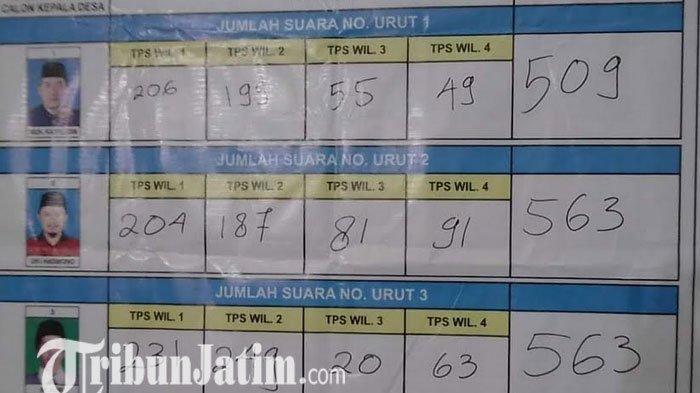 CALON KEPALA DESA
JUMLAH SUARA NO. URUT 1
TPS WIL. 1 TPS WIL. 2 TPS WIL. 3 TPS WIL. 4
206 199 55 49 509
JUMLAH SUARA NO. URUT 2
2
TPS WIL. 1 TPS WIL. 2 TPS WIL. 3 TPS WIL. 4
204 187 81 91 563
JUMLAH SUARA NO. URUT 3
3
TPS WIL. 1 TPS WIL. 2 TPS WIL. 3 TPS WIL. 4
231 249 20 63 563
TribunJatim.com